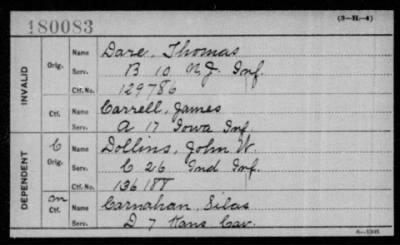 180083
(3-H.-4)
INVALID
Orig.
Name Dare, Thomas
Serv. B 10 N.J. Inf.
Ctf. No. 129786
Ctf.
Name Carrell, James
Serv. A 17 Iowa Inf
DEPENDENT
C
Orig.
Name Dollins, John W.
Serv. C 26 Ind Inf.
Ctf. No. 136188
Ctf.
Name Carnahan, Silas
Serv. D 7 Kans Cav.